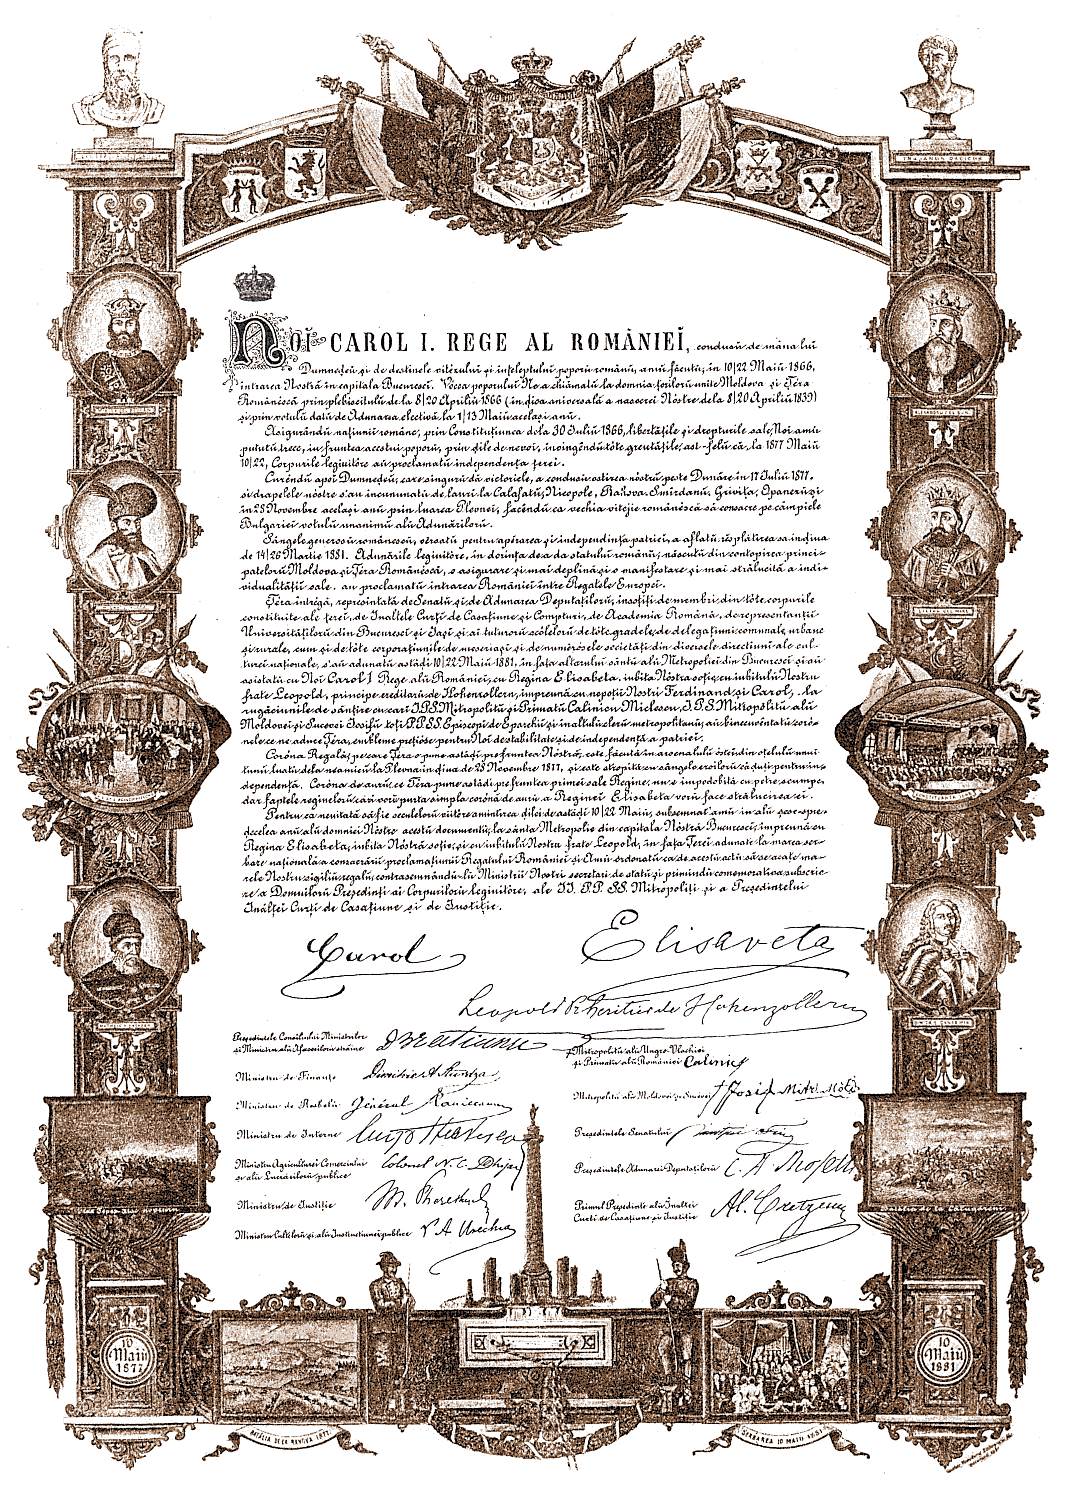 TRAJANUS DACICUS
NOĬ CAROL I. REGE AL ROMÂNIEĬ, condusŭ de mâna luĭ
Dumneḑeŭ și de destinele vitézuluĭ și înțeleptuluĭ poporŭ românŭ, amŭ făcutŭ, în 10/22 Maiŭ 1866,
intrarea Nostră în capitala Bucurescĭ. Vocea poporuluĭ Ne-a chiămatŭ la domnia țerilorŭ unite Moldova și Țéra
Românéscă prin plebiscitulŭ de la 8/20 Aprilie 1866 (în ḑiua aniversală a nascereĭ Nóstre de la 8/20 Aprilie 1839)
și prin votulŭ datŭ de Adunarea electivă la 1/13 Maiŭ același anŭ.
Asigurândŭ națiuniĭ române, prin Constituțiunea de la 30 Iulie 1866, libertățile și drepturile sale, Noĭ amŭ
pututŭ trece, în fruntea acestuĭ poporŭ, prin ḑile de nevoĭ, învingêndŭ tóte greutățile, ast-felŭ că la 1877 Maiŭ
10/22, Corpurile legiuitóre aŭ proclamatŭ independența țereĭ.
Curêndŭ apoĭ Dumneḑeŭ, care singurŭ dă victoriele, a condusŭ ostirea nóstră peste Dunăre în 17 Iulie 1877.
și drapelele nóstre s'aŭ încununatŭ de laurĭ la Calafatŭ, Nicopole, Rahova, Smîrdanŭ, Grivița, Opanezŭ și
în 28 Novembre același anŭ prin luarea Plevneĭ, făcêndŭ ca vechia vitejie românéscă să consacre pe câmpiele
Bulgarieĭ votulŭ unanimŭ alŭ Adunărilorŭ.
Sângele generosŭ românescŭ, vërsatŭ pentru apărarea și independența patrieĭ, a aflatŭ rësplătirea sa în ḑiua
de 14/26 Martie 1881. Adunările legiuitóre, în dorința de a da statuluĭ românŭ, născutŭ din contopirea princi-
patelorŭ Moldova și Țéra Românéscă, o asigurare și maĭ deplină și o manifestare și maĭ strălucită a indi-
vidualitățiĭ sale, aŭ proclamatŭ intrarea Românieĭ între Regatele Europeĭ.
Țéra întrégă, representată de Senatŭ și de Adunarea Deputațilorŭ, însoțițĭ de membri din tóte corpurile
constituite ale țereĭ, de Inaltele Curțĭ de Casațiune și Compturĭ, de Academia Română, de representanțiĭ
Universitățilorŭ din Bucurescĭ și Iașĭ și aĭ tuturorŭ scólelorŭ de tóte gradele, de delegațiunĭ comunale, urbane
și rurale, cum și de tóte corporațiunile de meseriașĭ și de numerósele societățĭ din diversele direcțiunĭ ale cul-
tureĭ naționale, s'aŭ adunatŭ astăḑĭ 10/22 Maiŭ 1881, în fața altaruluĭ sântŭ alŭ Metropolieĭ din Bucurescĭ și aŭ
asistatŭ cu Noĭ Carol I Rege alŭ Românieĭ, cu Regina Elisabeta, iubita Nóstră soție, cu iubitulŭ Nostru
frate Leopold, principe ereditarŭ de Hohenzollern, împreună cu nepoțiĭ Noștri Ferdinand și Carol, la
rugăciunile de sânțire cu carĭ I.P.S. Mitropolitŭ și Primatŭ Calinicŭ Miclescu, I.P.S. Mitropolitŭ alŭ
Moldoveĭ și Suceveĭ Iosifŭ, toțĭ P.P. S.S. Episcopĭ de Eparchiĭ și înaltulŭ clerŭ metropolitanŭ, aŭ binecuvêntatŭ coró-
nele ce ne aduce Țéra, embleme prețióse pentru Noĭ de stabilitate și de independență a patrieĭ.
Coróna Regală, pe care Țéra o pune astăḑĭ pe fruntea Nostră, este făcută în arsenalulŭ ósteĭ din oțelulŭ unuĭ
tunŭ luatŭ de la neamicŭ la Plevna în ḑiua de 28 Novembre 1877, și este stropită cu sângele eroilorŭ căḑuțĭ pentru in-
dependență. Coróna de aurŭ, ce Țéra pune astăḑĭ pe fruntea primeĭ sale Regine, nu e împodobită cu petre scumpe,
dar faptele reginelorŭ carĭ vorŭ purta simpla corónă de aurŭ a Regineĭ Elisabeta vorŭ face strălucirea eĭ.
Pentru ca neuitată să fie seculelorŭ viitóre amintirea ḑileĭ de astăḑĭ 10/22 Maiŭ, subsemnat'amŭ în alŭ șese-spre-
ḑecelea anŭ alŭ domnieĭ Nóstre acestŭ documentŭ, la sânta Metropolie din capitala Nóstră Bucurescĭ, împreună cu
Regina Elisabeta, iubita Nóstră soție, și cu iubitulŭ Nostru frate Leopold, în fața Țereĭ adunate la marea ser-
bare națională a consacrăriĭ proclamațiuniĭ Regatuluĭ Românieĭ și Amŭ ordonatŭ ca de acestŭ actŭ să se acațe ma-
rele Nostru sigiliŭ regalŭ, contrasemnându-lŭ Miniștriĭ Noștri secretarĭ de statŭ și priimindŭ comemorativa subscrie-
re a Domnilorŭ Președințĭ aĭ Corpurilorŭ legiuitóre, ale II. PP. SS. Mitropolițĭ și a Președinteluĭ
Inalteĭ Curțĭ de Casațiune și de Justiție.
Carol
Elisaveta
Leopold Pr. héritier de Hohenzollern
Președintele Consiliuluĭ Miniștrilor
și Ministru alŭ Afacerilorŭ străine
D Brătianu
Mitropolitŭ alŭ Ungro-Vlachieĭ
și Primatŭ alŭ Românieĭ Calinic
Ministru de Finanțe
Ministru de Resbelŭ Général
Mitropolitŭ alŭ Moldoveĭ și Suceveĭ † Iosif Mitrl. Mold.
Ministru de Interne
Președintele Senatuluĭ
Ministru Agricultureĭ Comerciuluĭ
și alŭ Lucrărilorŭ publice
Colonel N. C. Dabija
Președintele Adunareĭ Deputaților
Ministru de Justiție
Primul Președinte alŭ Înalteĭ
Curțĭ de Casațiune și Justiție
Al. Cretzescu
Ministru Cultelorŭ și alŭ Instrucțiuneĭ publice V A Urechia
10
Maiŭ
1877
10
Maiŭ
1881
BATALIA DE LA PLEVNA 1877
SERBAREA 10 MAIŬ 1881